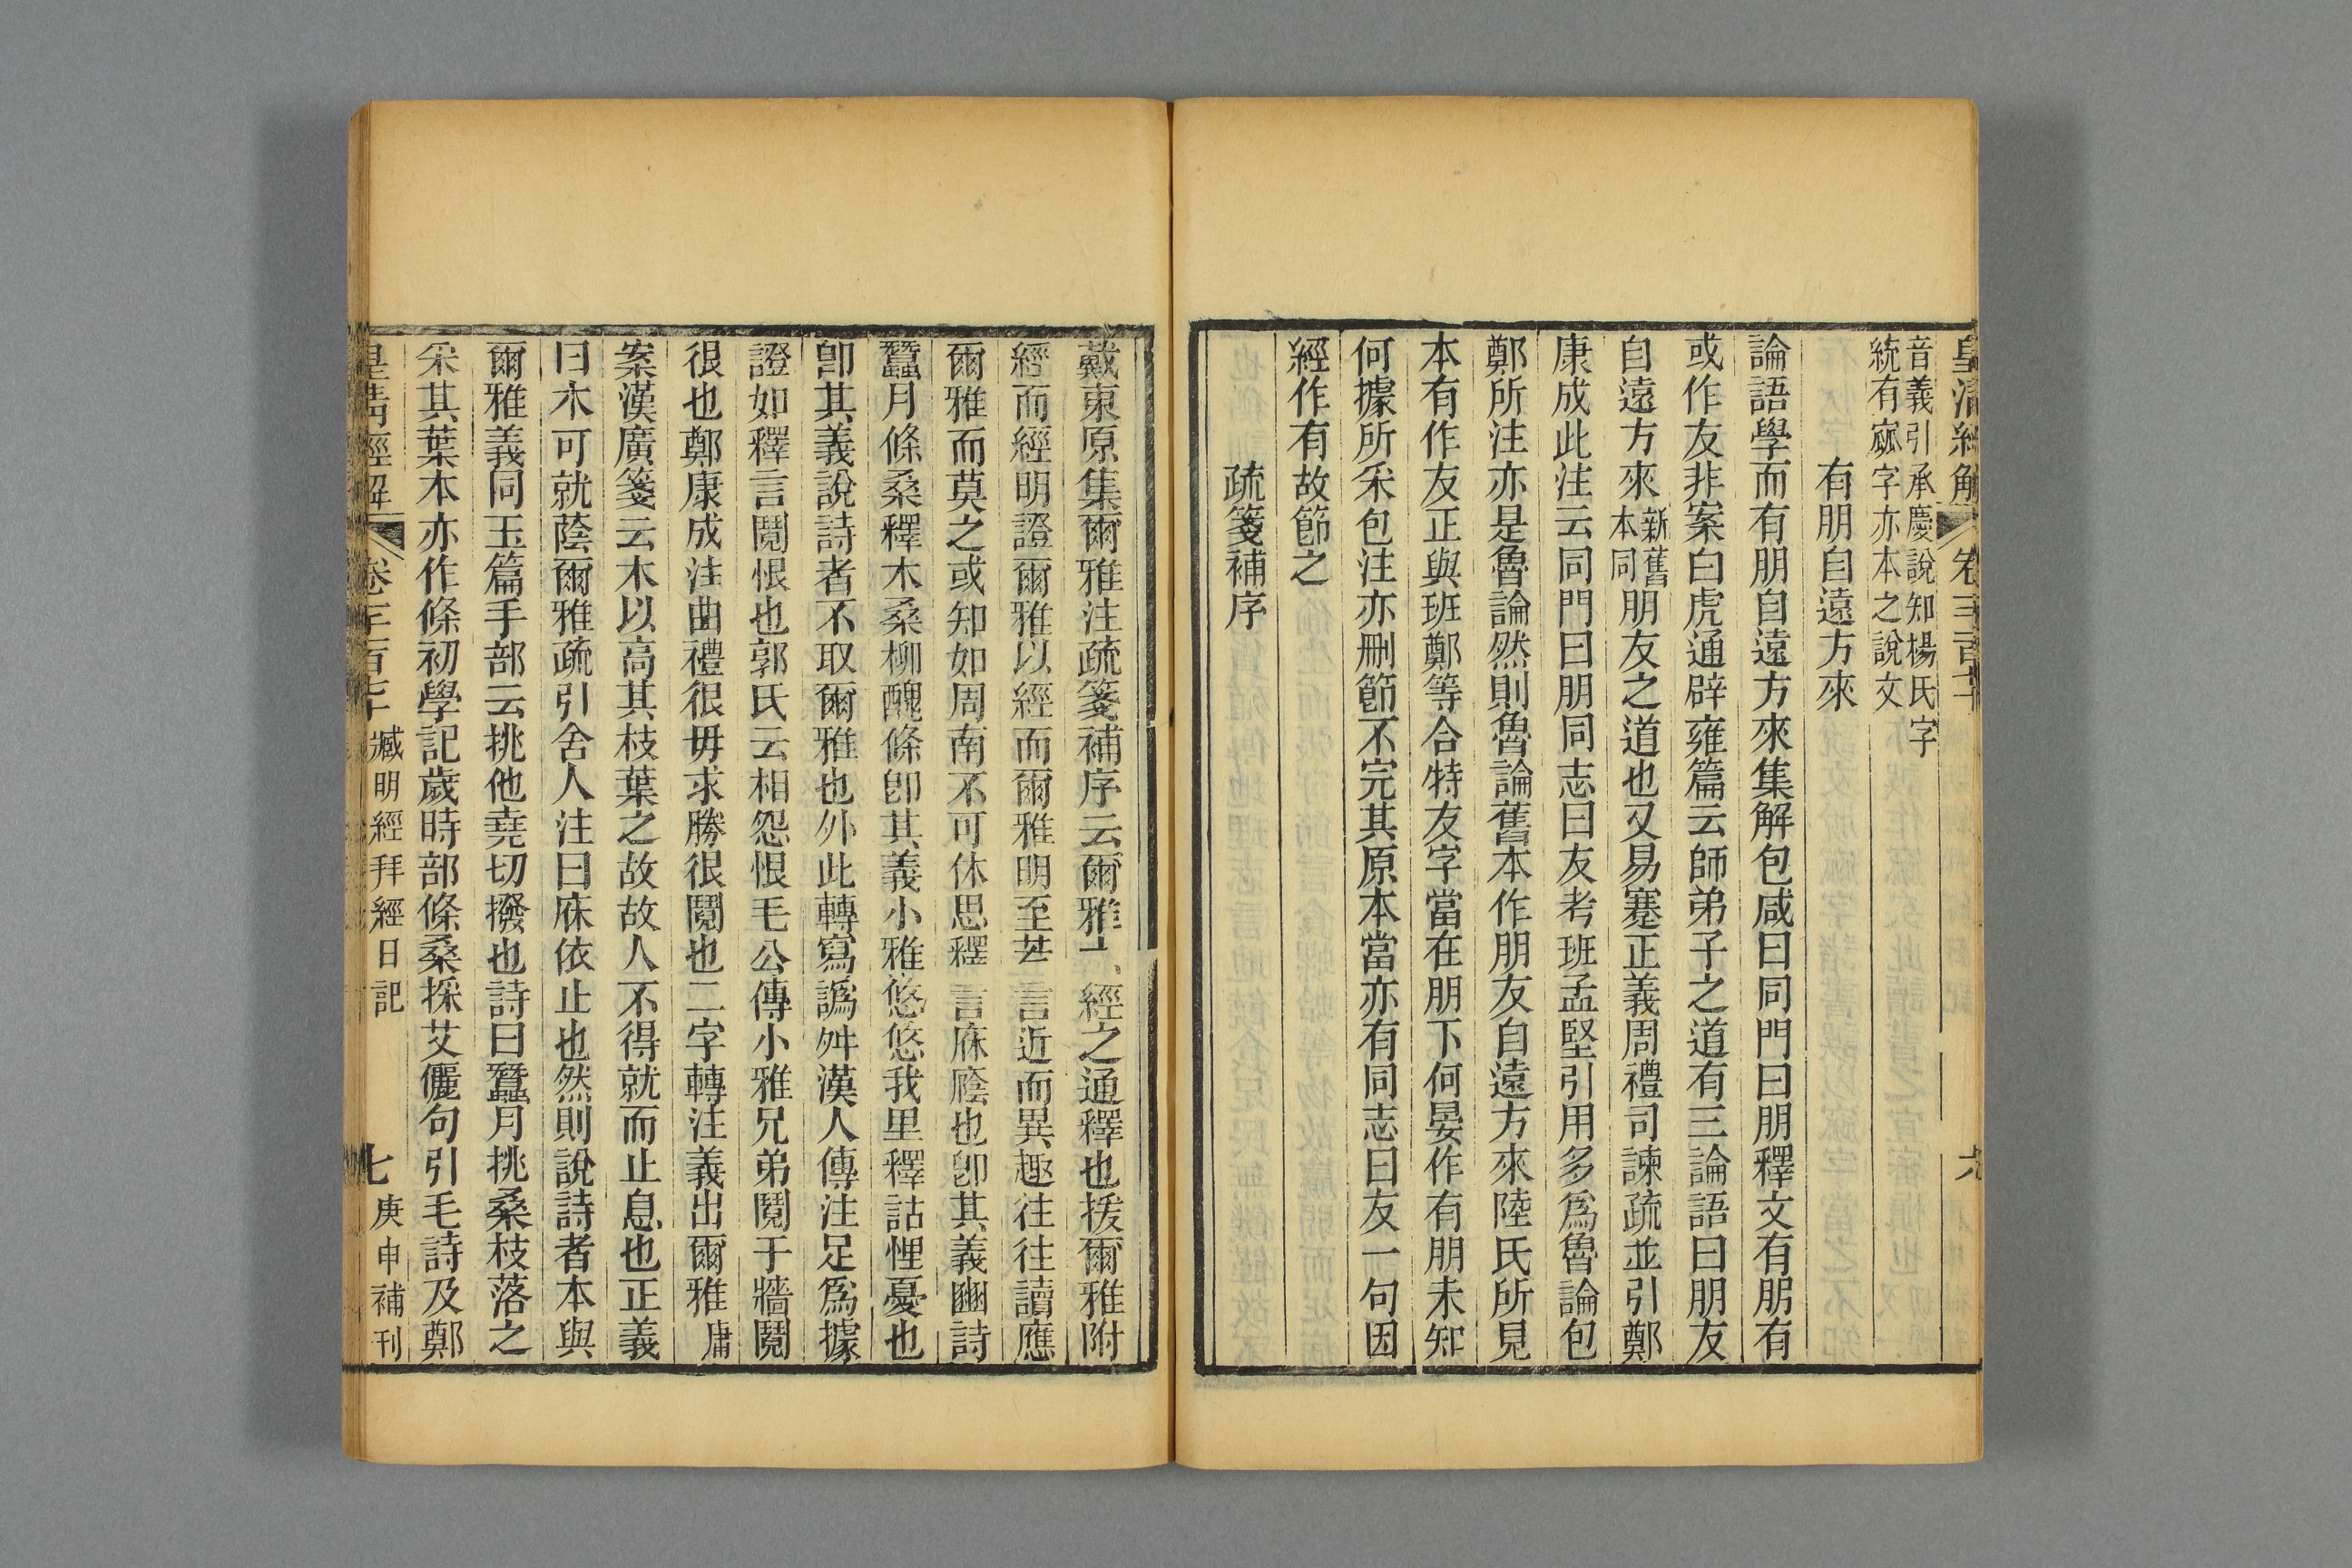 皇清經解
卷千百七十
六
音義引承慶說知楊氏字
統有寙字亦本之說文
有朋自遠方來
論語學而有朋自遠方來集解包咸曰同門曰朋釋文有朋有
或作友非案白虎通辟雍篇云師弟子之道有三論語曰朋友
自遠方來新舊本同朋友之道也又易蹇正義周禮司諫疏並引鄭
康成此注云同門曰朋同志曰友考班孟堅引用多爲魯論包
鄭所注亦是魯論然則魯論舊本作朋友自遠方來陸氏所見
本有作友正與班鄭等合特友字當在朋下何晏作有朋未知
何據所采包注亦刪節不完其原本當亦有同志曰友一句因
經作有故節之
疏箋補序
戴東原集爾雅注疏箋補序云爾雅經之通釋也援爾雅附
經而經明證爾雅以經而爾雅明至若言近而異趣往往讀應
爾雅而莫之或知如周南不可休思釋言庥廕也卽其義豳詩
蠶月條桑釋木桑柳醜條卽其義小雅悠悠我里釋詁悝憂也
卽其義說詩者不取爾雅也外此轉寫譌舛漢人傳注足爲據
證如釋言鬩恨也郭氏云相怨恨毛公傳小雅兄弟鬩于牆鬩
很也鄭康成注曲禮很毋求勝很鬩也二字轉注義出爾雅庸
案漢廣箋云木以高其枝葉之故故人不得就而止息也正義
曰木可就蔭爾雅疏引舍人注曰庥依止也然則說詩者本與
爾雅義同玉篇手部云挑他堯切撥也詩曰蠶月挑桑枝落之
采其葉本亦作條初學記歲時部條桑採艾儷句引毛詩及鄭
皇清經解
卷千百七十
臧明經拜經日記
七
庚申補刊